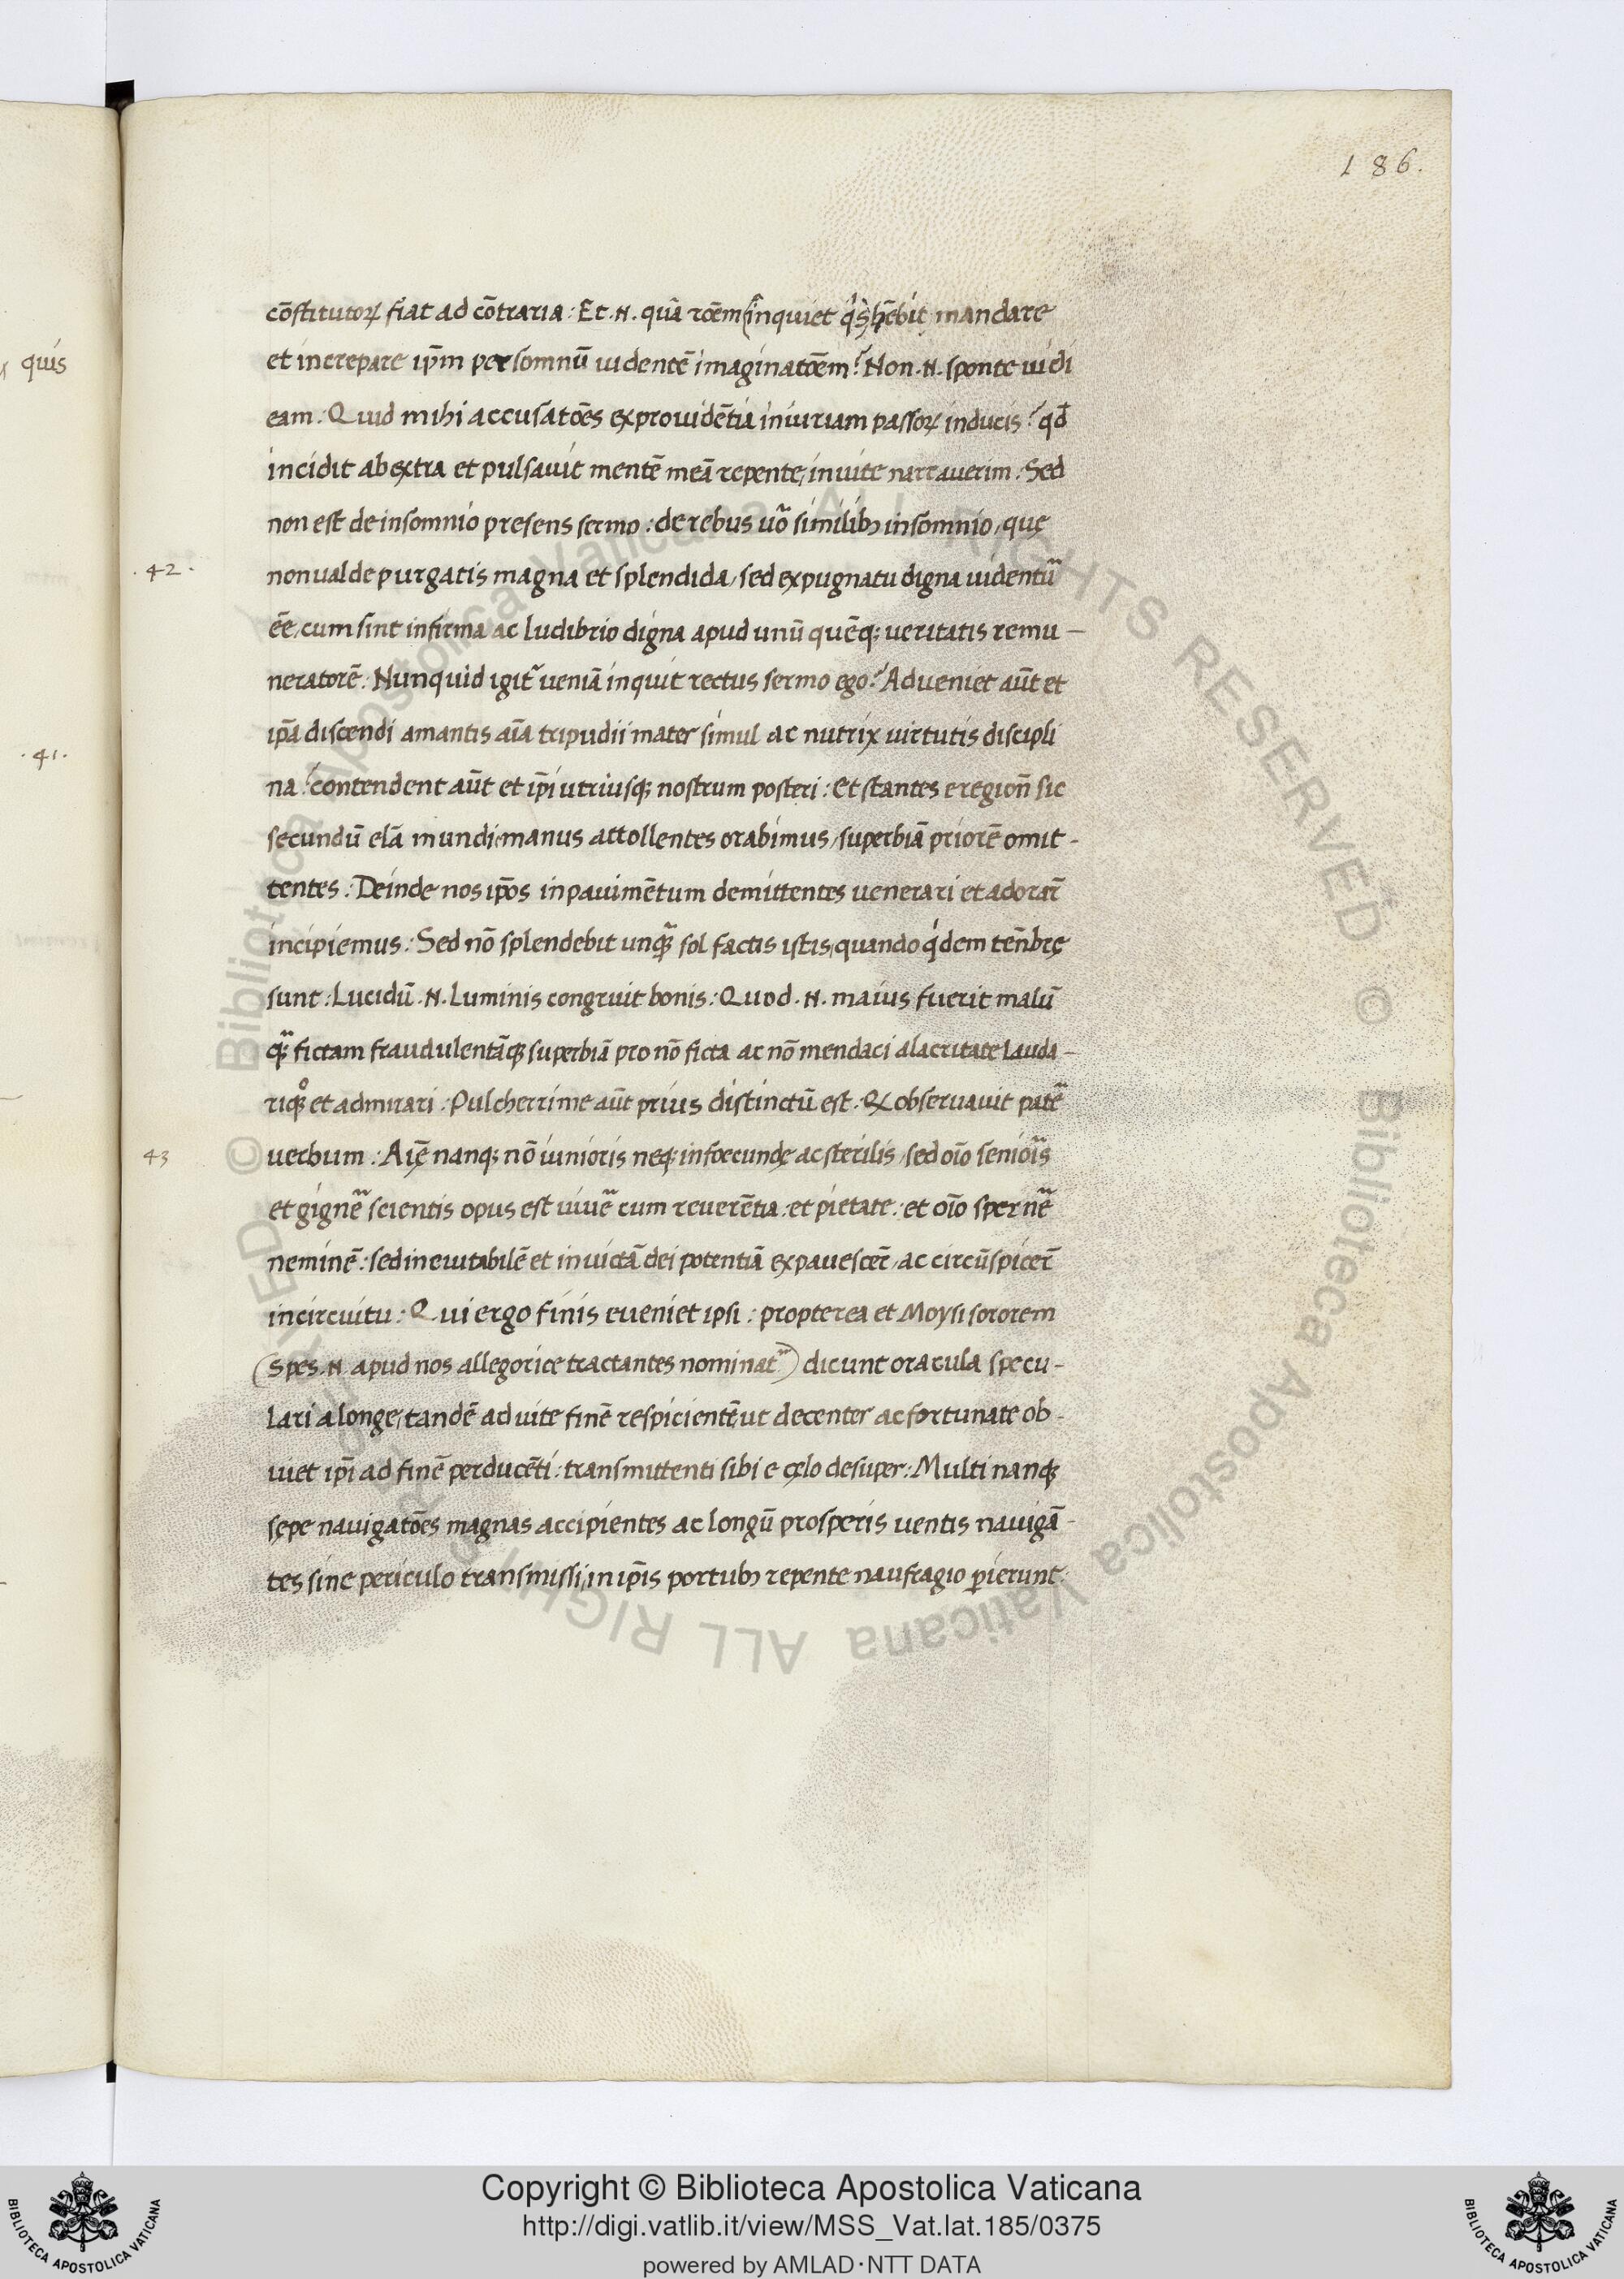 186.
quis
cōstitutoꝝ fiat ad cōtraria: Et .N. quā rōem (inquiet q̓s hēbit mandare
et increpare ip̄m per somnū uidentē imaginatōem? Non .N. sponte uidi
eam: Quid mihi accusatōes ex prouidētia iniuriam passoꝝ inducis? qđ
incidit ab extra et pulsauit mentē meā repente, inuite narrauerim: Sed
non est de insomnio presens sermo: de rebus uo᷒ similibꝫ insomnio, quę
.42. non ualde purgatis magna et splendida, sed expugnatu digna uidentur̃
ēe, cum sint infirma ac ludibrio digna apud unū quēq; ueritatis remu–
neratorē: Nunquid igit᷑ ueniā inquit rectus sermo ego? Adueniet aūt et
.41. ip̄a discendi amantis aīa tripudii mater simul ac nutrix uirtutis discipli
na? contendent aūt et ip̄i utriusq; nostrum posteri: Et stantes e regioñ sic
secundū elā mundi manus attollentes orabimus, superbiā priorē omit-
tentes: Deinde nos ip̄os in pauimētum demittentes uenerari et adorar̄
incipiemus: Sed nō splendebit unq̃ sol factis istis, quando q̓dem teñbrę
sunt: Lucidū .N. Luminis congruit bonis: Quod .N. maius fuerit malū
q̃; fictam fraudulentāq; superbiā pro nō ficta ac nō mendaci alacritate Lauda-
riq; et admirari: Pulcherrime aūt prius distinctū est. Ex obseruauit patē
43 uerbum: Aię nanq; nō iunioris neq; infoecundę ac sterilis, sed oīo senioĩs
et gignẽ scientis opus est uiuẽ cum reuerētia: et pietate: et oīo spernẽ
neminē: sed ineuitabilē et inuictā dei potentiā expauescer̄, ac circūspicer̄
in circuitu: Qui ergo finis eueniet ipsi: propterea et Moysi sororem
(Spes .N. apud nos allegorice tractantes nominat᷑) dicunt oracula specu-
lari a longe, tandē ad uite finē respicientē, ut decenter ac fortunate ob-
uiet ip̄i ad finē perducēti: transmittenti sibi e cęlo desuper: Multi nanq;
sępe nauigatōes magnas accipientes ac longū prosperis uentis nauigā-
tes sine periculo transmissi, in ip̄is portubꝫ repente naufragio ꝑierunt:
Copyright © Biblioteca Apostolica Vaticana
http://digi.vatlib.it/view/MSS_Vat.lat.185/0375
powered by AMLAD·NTT DATA
BIBLIOTECA APOSTOLICA VATICANA
BIBLIOTECA APOSTOLICA VATICANA